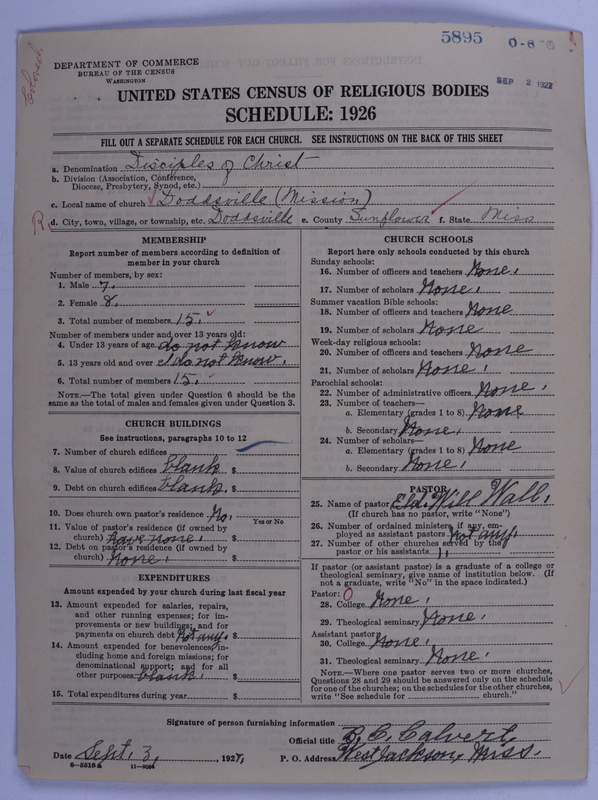 5895
0-6
SEP 2 1927
Colored.
DEPARTMENT OF COMMERCE
BUREAU OF THE CENSUS
WASHINGTON
UNITED STATES CENSUS OF RELIGIOUS BODIES
SCHEDULE: 1926
FILL OUT A SEPARATE SCHEDULE FOR EACH CHURCH. SEE INSTRUCTIONS ON THE BACK OF THIS SHEET
a. Denomination Disciples of Christ
b. Division (Association, Conference,
Diocese, Presbytery, Synod, etc.)
c. Local name of church Doddsville (Mission)
R d. City, town, village, or township, etc. Doddsville e. County Sunflower f. State Miss
MEMBERSHIP
Report number of members according to definition of
member in your church
Number of members, by sex:
1. Male 7.
2. Female 8.
3. Total number of members 15.
Number of members under and over 13 years old:
4. Under 13 years of age do not know
5. 13 years old and over I do not know.
6. Total number of members 15.
NOTE.—The total given under Question 6 should be the
same as the total of males and females given under Question 3.
CHURCH BUILDINGS
See instructions, paragraphs 10 to 12
7. Number of church edifices
8. Value of church edifices blank $
9. Debt on church edifices blank. $
10. Does church own pastor's residence No.
Yes or No
11. Value of pastor's residence (if owned by
church) have none. $
12. Debt on pastor's residence (if owned by
church) None. $
EXPENDITURES
Amount expended by your church during last fiscal year
13. Amount expended for salaries, repairs,
and other running expenses; for im-
provements or new buildings; and for
payments on church debt Not any. $
14. Amount expended for benevolences, in-
cluding home and foreign missions; for
denominational support; and for all
other purposes blank. $
15. Total expenditures during year $
CHURCH SCHOOLS
Report here only schools conducted by this church
Sunday schools:
16. Number of officers and teachers None.
17. Number of scholars None.
Summer vacation Bible schools:
18. Number of officers and teachers None
19. Number of scholars None
Week-day religious schools:
20. Number of officers and teachers None
21. Number of scholars None.
Parochial schools:
22. Number of administrative officers None.
23. Number of teachers—
a. Elementary (grades 1 to 8) None
b. Secondary None.
24. Number of scholars—
a. Elementary (grades 1 to 8) None
b. Secondary None.
PASTOR
25. Name of pastor Eld. Will Wall.
(If church has no pastor, write "None")
26. Number of ordained ministers, if any, em-
ployed as assistant pastors not any.
27. Number of other churches served by the
pastor or his assistants
If pastor (or assistant pastor) is a graduate of a college or
theological seminary, give name of institution below. (If
not a graduate, write "No" in the space indicated.)
Pastor: O
28. College None.
29. Theological seminary None.
Assistant pastor:
30. College None.
31. Theological seminary None.
NOTE.—Where one pastor serves two or more churches,
Questions 28 and 29 should be answered only on the schedule
for one of the churches; on the schedules for the other churches,
write "See schedule for church."
Signature of person furnishing information
Official title B. C. Calvert,
Date Sept. 3, 1927, P. O. Address West Jackson, Miss.
8-5518 a 11-9024